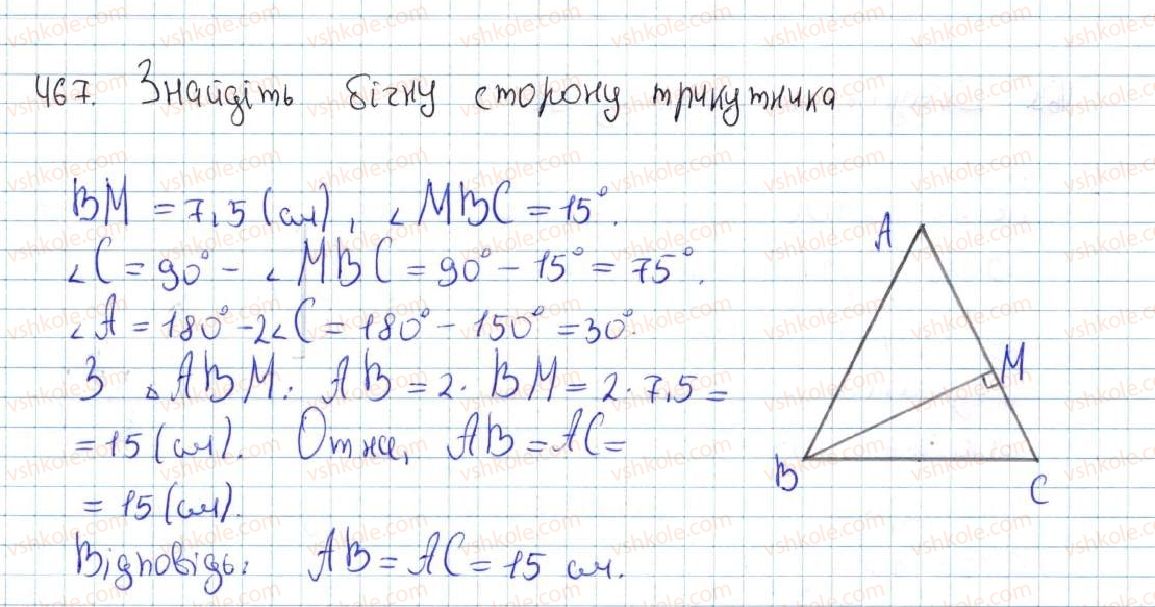 467. Знайдіть бічну сторону трикутника
BM = 7,5 (см), ∠MBC = 15°.
∠C = 90° - ∠MBC = 90° - 15° = 75°.
∠A = 180° - 2∠C = 180° - 150° = 30°.
З △ABM: AB = 2 · BM = 2 · 7,5 =
= 15 (см). Отже, AB = AC =
= 15 (см).
Відповідь: AB = AC = 15 см.
A
M
B
C
vshkole.com